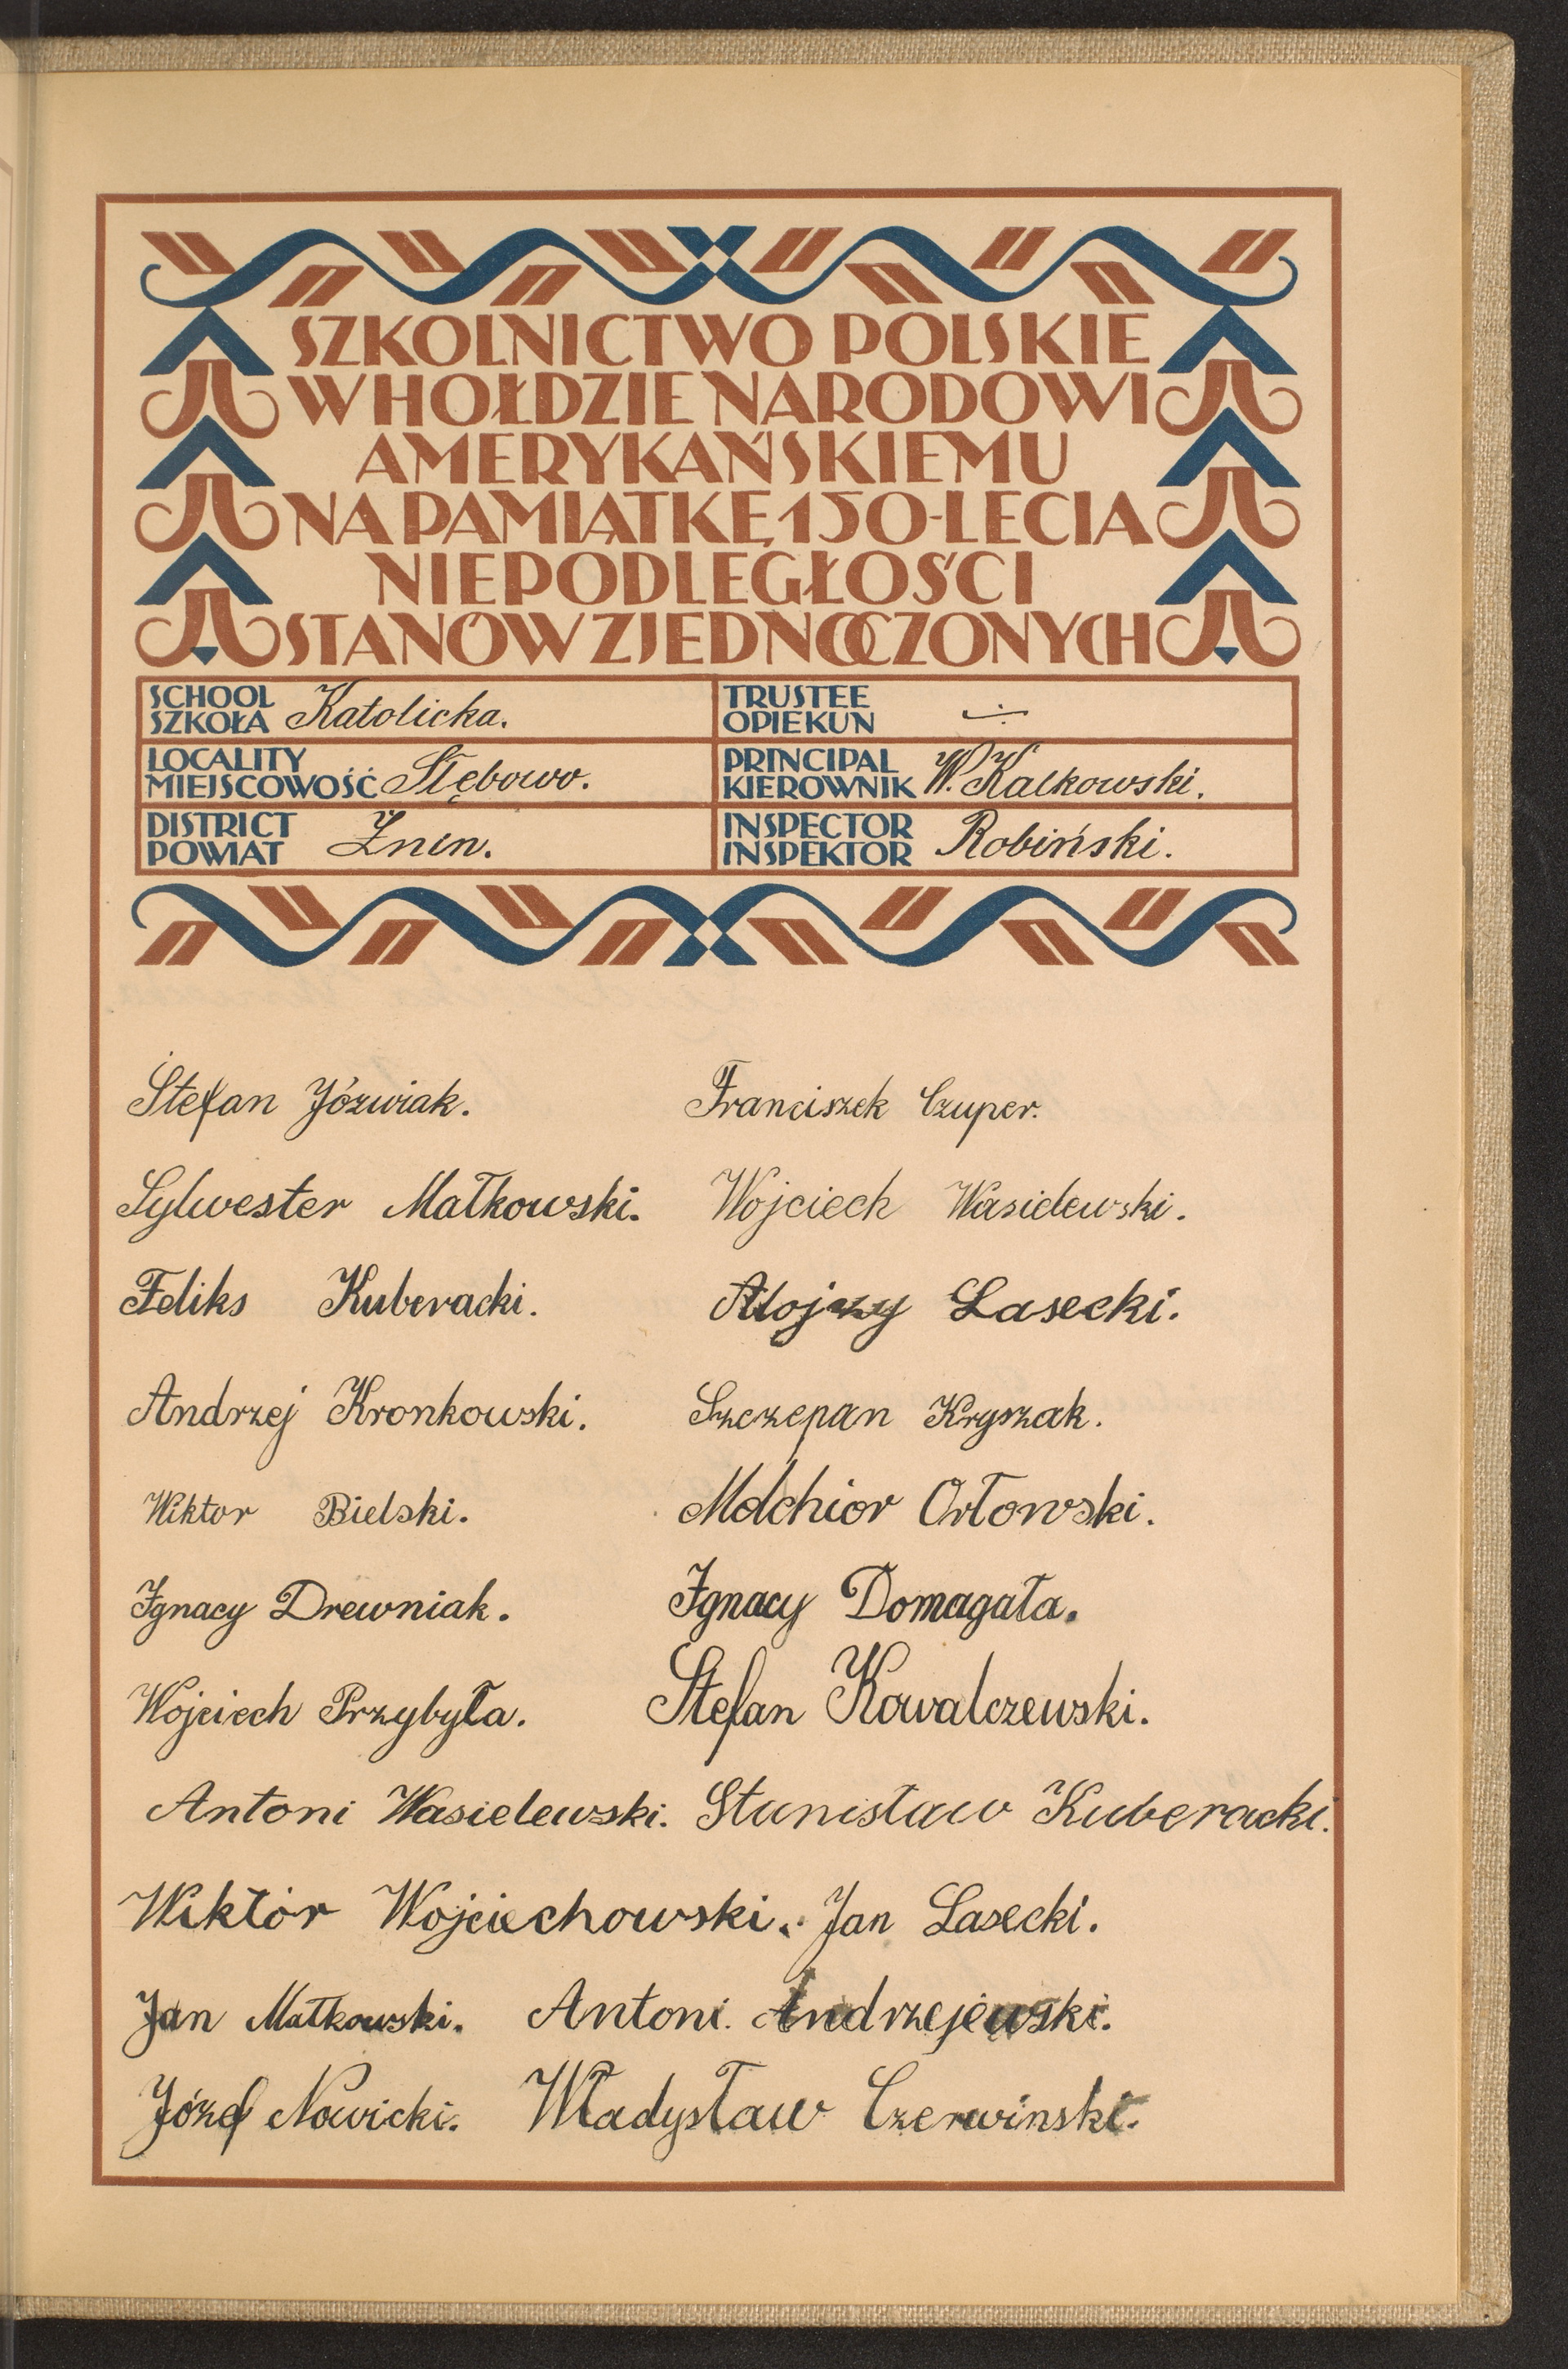 SZKOLNICTWO POLSKIE
W HOŁDZIE NARODOWI
AMERYKAŃSKIEMU
NA PAMIĄTKĘ 150-LECIA
NIEPODLEGŁOŚCI
STANÓW ZJEDNOCZONYCH
SCHOOL
SZKOŁA Katolicka.
TRUSTEE
OPIEKUN
LOCALITY
MIEJSCOWOŚĆ Slębowo.
PRINCIPAL
KIEROWNIK W. Kalkowski.
DISTRICT
POWIAT Żnin.
INSPECTOR
INSPEKTOR Robiński.
Stefan Józwiak. Franciszek Czuper.
Sylwester Małkowski. Wojciech Wasielewski.
Feliks Kuberacki. Alojzy Lasecki.
Andrzej Kronkowski. Szczepan Kryszak.
Wiktor Bielski. Melchior Orłowski.
Ignacy Drewniak. Ignacy Domagała.
Wojciech Przybyła. Stefan Kowalczewski.
Antoni Wasielewski. Stanisław Kuberacki.
Wiktór Wojciechowski. Jan Lasecki.
Jan Małkowski. Antoni. Andrzejewski.
Józef Nowicki. Władysław Czerwinski.